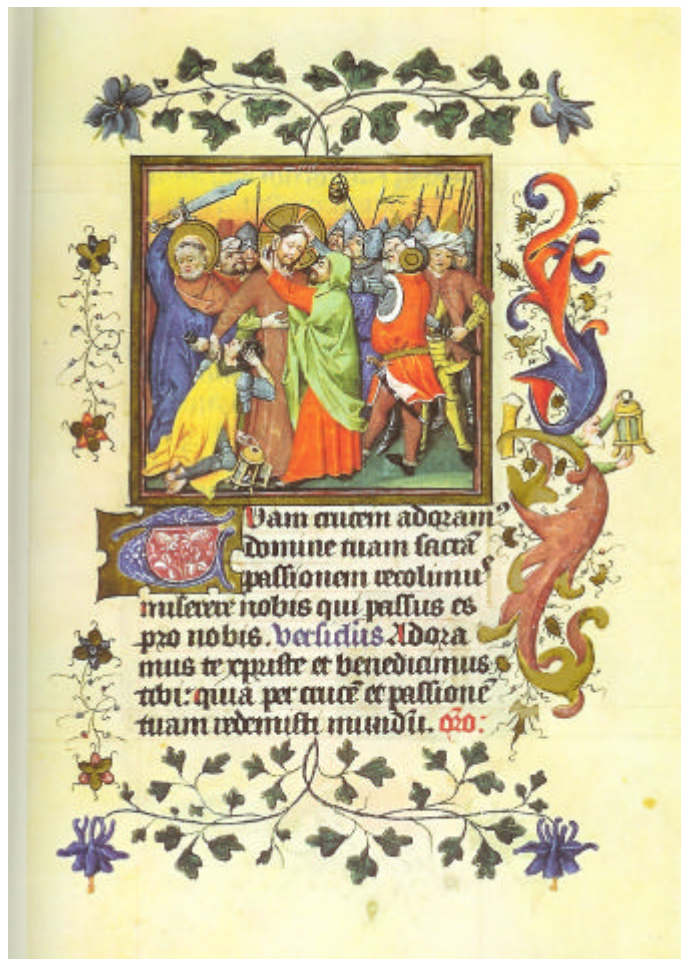 Tuam crucem adoram⁹
domine tuam sacrā
passionem recolimus
miserere nobis qui passus es
pro nobis. Versiclus Adora
mus te xpriste et benedicimus
tibi: quia per crucē et passionē
tuam redemisti mundū. oro: